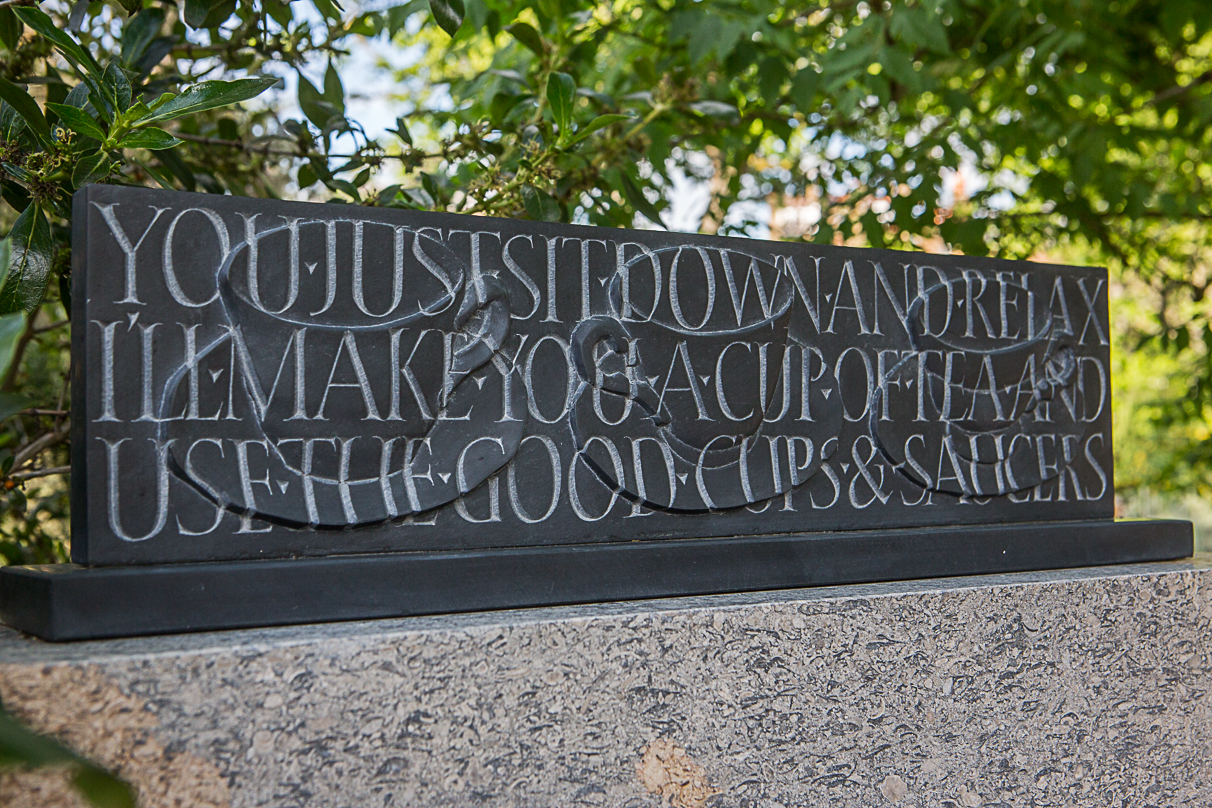 YOU·JUST·SIT·DOWN·AND·RELAX
I'LL·MAKE·YOU·A·CUP·OF·TEA·AND
USE·THE·GOOD·CUPS·&·SAUCERS